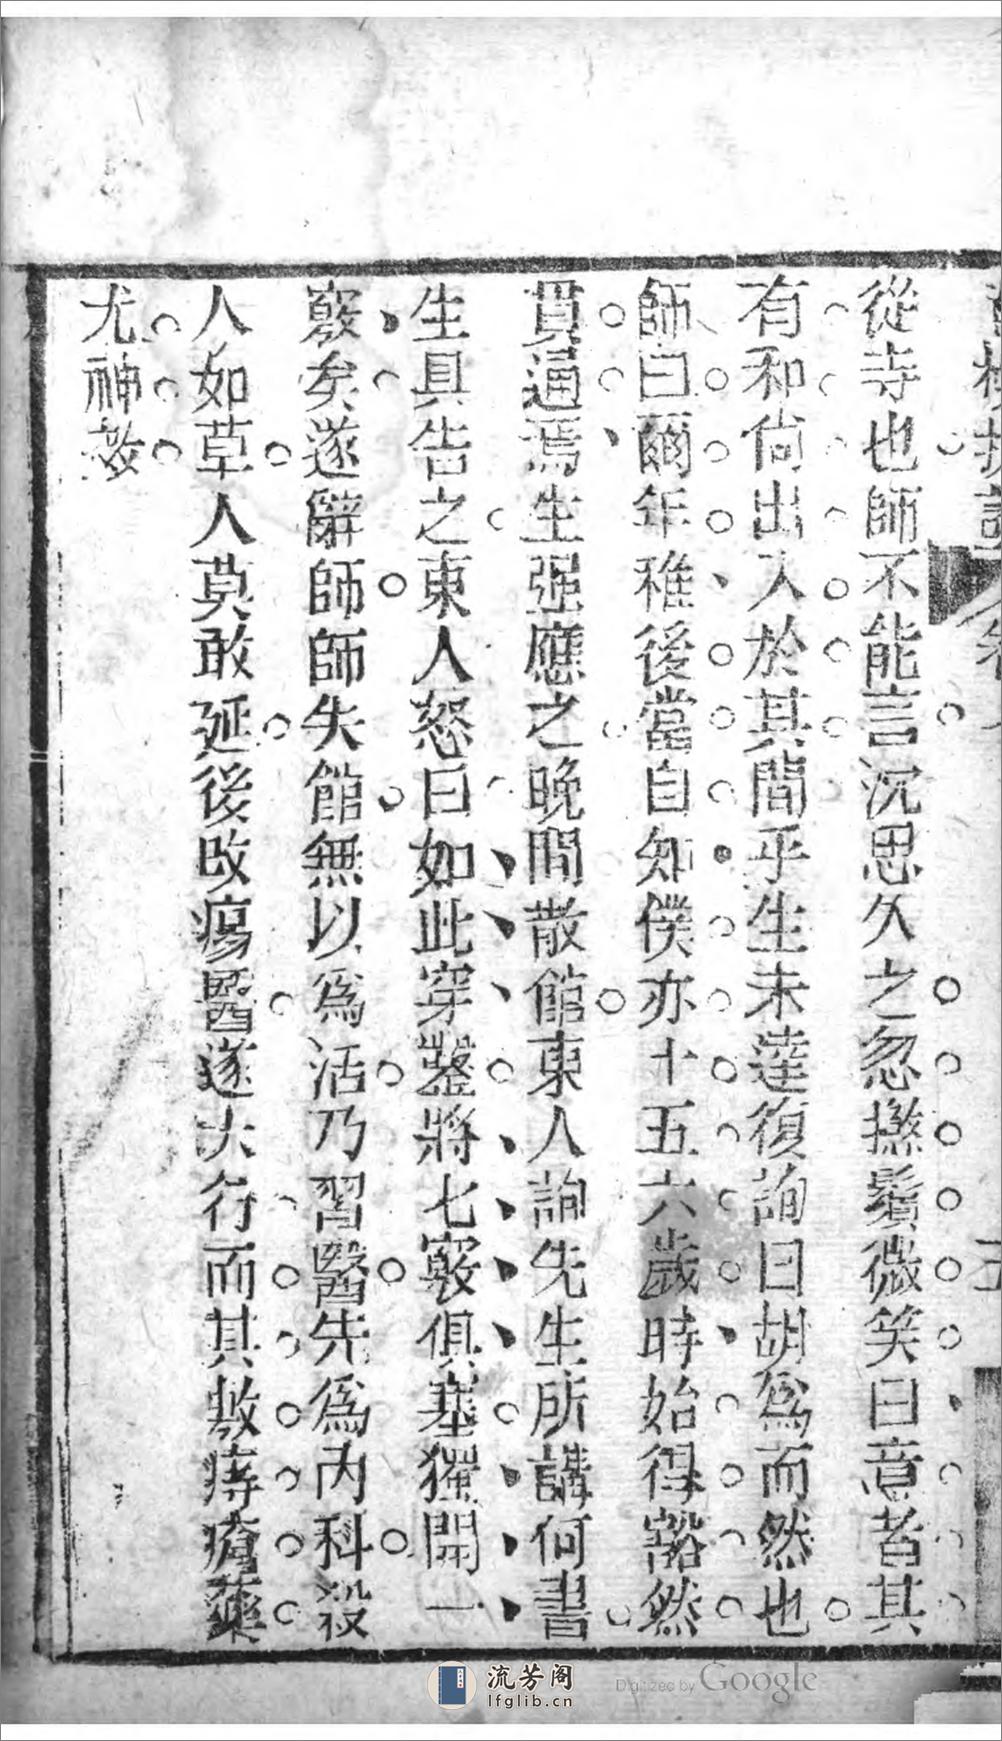 從寺也師不能言沉思久之忽撚鬚微笑曰意者其
有和尙出入於其間乎生未達復詢曰胡爲而然也
師曰爾年稚後當自知僕亦十五六歲時始得豁然
貫通焉生强應之晚間散館東人詢先生所講何書
生具告之東人怒曰如此穿鑿將七竅俱塞獨開一
竅矣遂辭師師失館無以爲活乃習醫先爲內科殺
人如草人莫敢延後改瘍醫遂大行而其敷痔瘡藥
尤神效
流芳阁
lfglib.cn
Digitized by Google